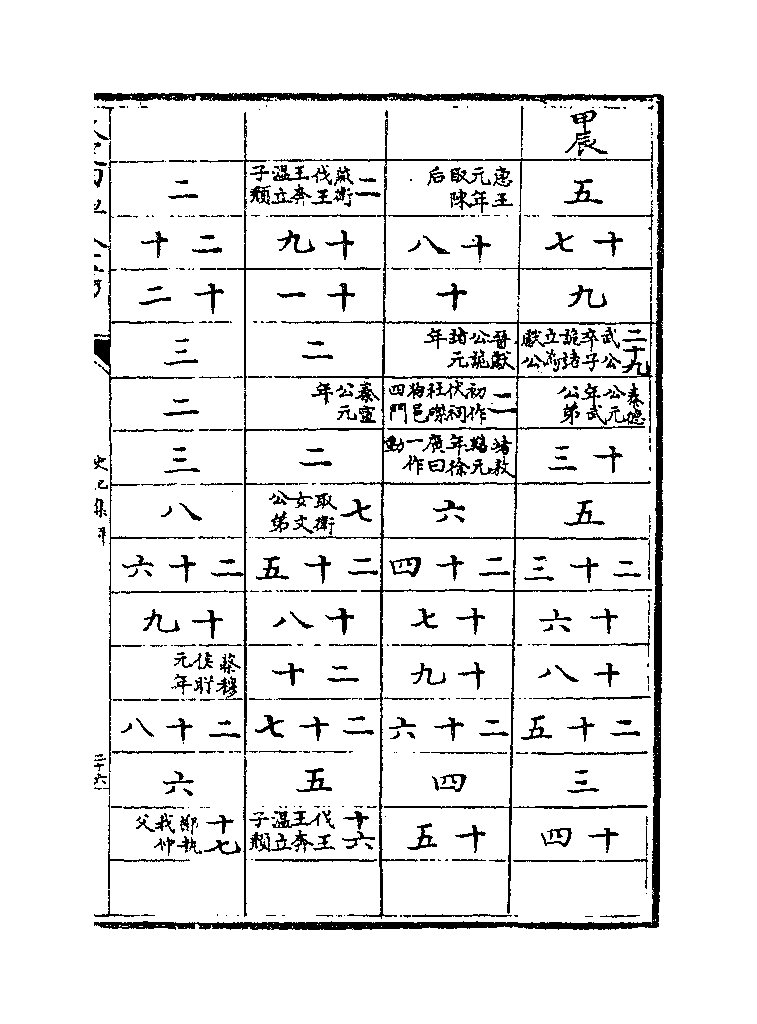 甲辰
五
十七
九
二十九 武公卒子詭諸立為獻公
秦德公元年武公弟
十三
五
二十三
十六
十八
二十五
三
十四
惠王元年取陳后
十八
十
晉獻公詭諸元年
二 初作伏祠社磔狗邑四門
堵敖囏元年徐廣曰一作動
六
二十四
十七
十九
二十六
四
十五
二 燕衛伐王王奔溫立子頹
十九
十一
二
秦宣公元年
二
七 取衛女文公弟
二十五
十八
二十
二十七
五
十六 伐王王奔溫立子頹
二
二十
十二
三
二
三
八
二十六
十九
蔡穆侯肸元年
二十八
六
十七 鄭執我仲父
史記集解
二十六